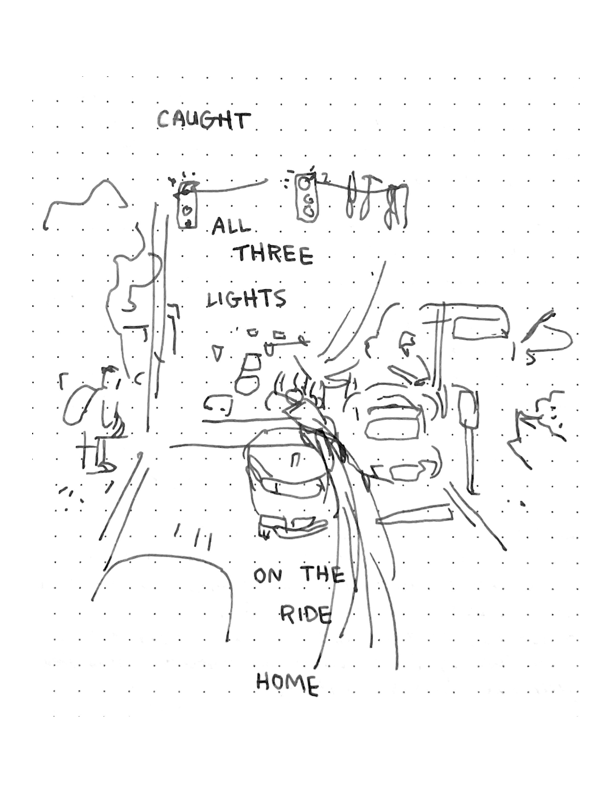 CAUGHT
ALL
THREE
LIGHTS
ON THE
RIDE
HOME